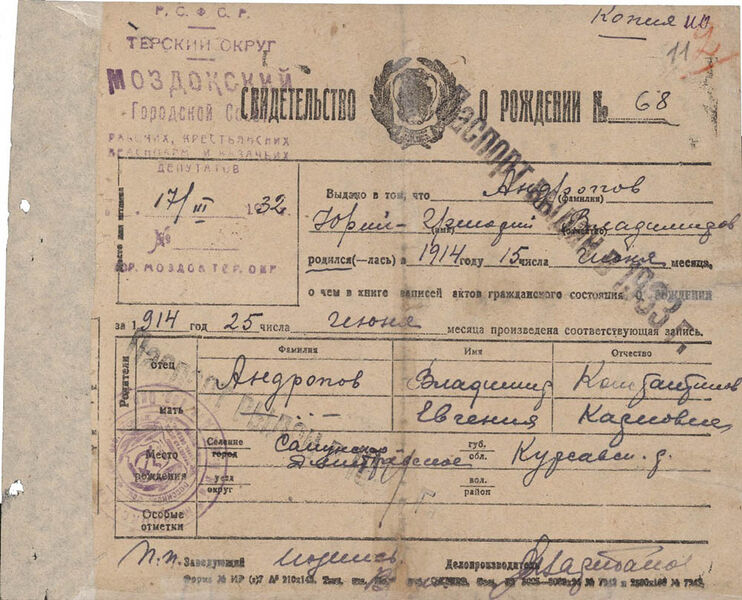 Р. С. Ф. С. Р.
Копия
ТЕРСКИЙ ОКРУГ
11
МОЗДОКСКИЙ
Городской
СВИДЕТЕЛЬСТВО О РОЖДЕНИИ № 68
РАБОЧИХ, КРЕСТЬЯНСКИХ
КРАСНОАРМ. И КАЗАЧЬИХ
ДЕПУТАТОВ
Паспорт выдан в 1933 г.
17/III 1932
№
ГОР. МОЗДОК ТЕР. ОКР.
Место для штампа
Выдано в том, что Андропов
(фамилия)
Юрий Владимиров
(имя) (отчество)
родился(—лась) в 1914 году 15 числа Июня месяца,
о чем в книге записей актов гражданского состояния, о рождении
за 1914 год 25 числа Июня месяца произведена соответствующая запись.
Родители
Фамилия Имя Отчество
отец Андропов Владимир Константинов
мать Евгения Карловна
Паспорт выдан
Место рождения
Селение город губ. обл. Курсавск. р.
уезд округ вол. район
Особые отметки
п.п. Заведующий подпись Делопроизводитель
Форма № МР